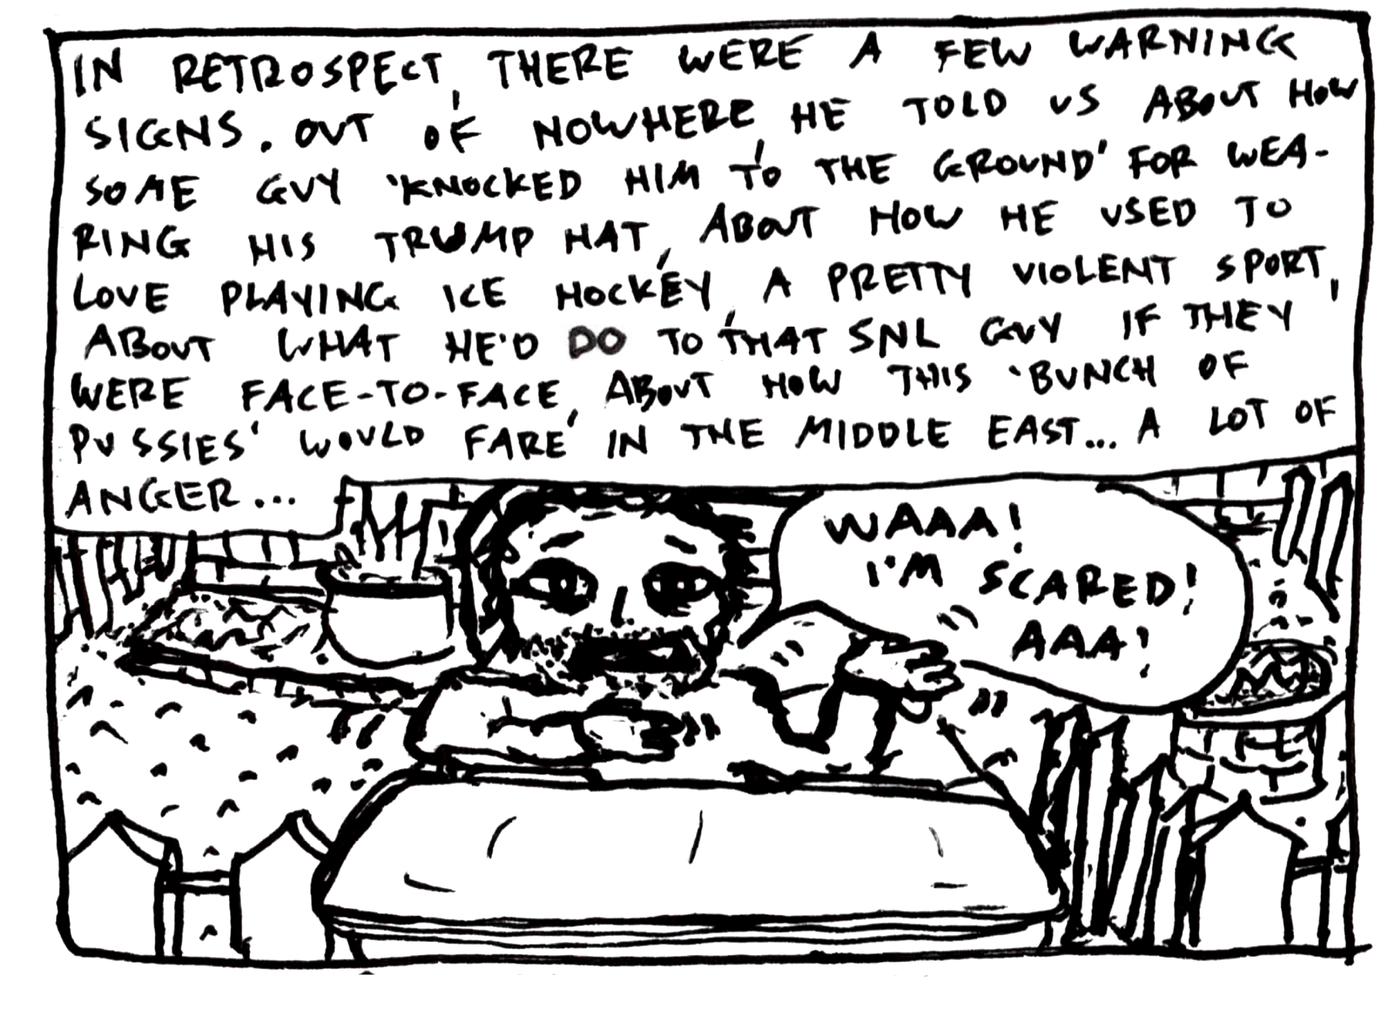 IN RETROSPECT, THERE WERE A FEW WARNING
SIGNS. OUT OF NOWHERE, HE TOLD US ABOUT HOW
SOME GUY 'KNOCKED HIM TO THE GROUND' FOR WEA-
RING HIS TRUMP HAT, ABOUT HOW HE USED TO
LOVE PLAYING ICE HOCKEY, A PRETTY VIOLENT SPORT,
ABOUT WHAT HE'D DO TO THAT SNL GUY IF THEY
WERE FACE-TO-FACE, ABOUT HOW THIS 'BUNCH OF
PUSSIES' WOULD FARE IN THE MIDDLE EAST... A LOT OF
ANGER...
WAAA!
I'M SCARED!
AAA!